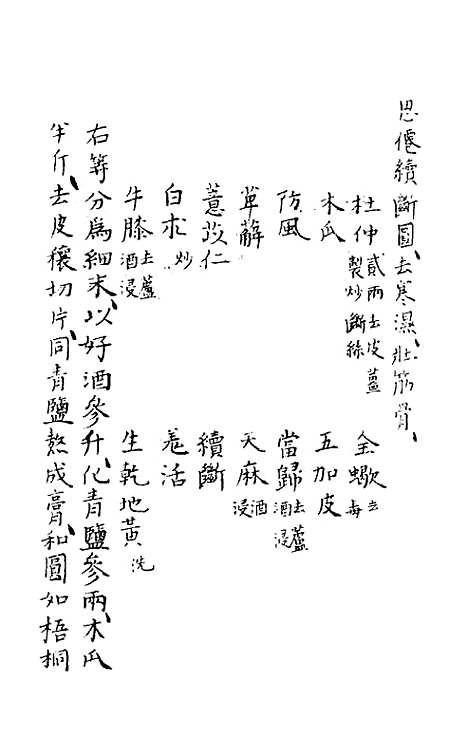 思僊續斷圓、去寒濕、壯筋骨、
杜仲貳兩去皮薑製炒斷絲 全蠍去毒
木瓜 五加皮
防風 當歸去蘆酒浸
萆薢 天麻酒浸
薏苡仁 續斷
白朮炒 羌活
牛膝去蘆酒浸 生乾地黃洗
右等分爲細末、以好酒參升、化青鹽參兩、木瓜
半斤、去皮穰切片、同青鹽熬成膏、和圓如梧桐